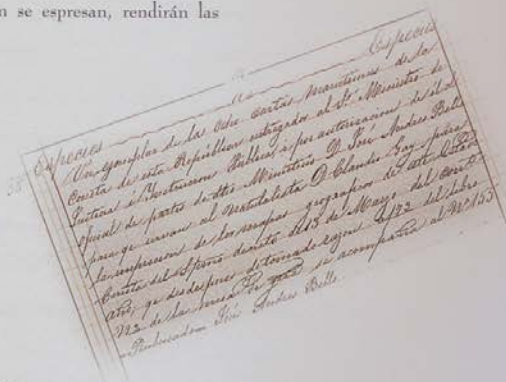 n se espresan, rendirán las
Especies Especies
Un ejemplar de las ocho cartas maritimas de la
Costa de esta República entregadas al Sr. Ministro de
Justicia e Instruccion Pública i por autorizacion de él al
oficial de partes de dho Ministerio D. José Andres Bello
para qe sirvan al Naturalista D. Claudio Gay para
la impresion de los mapas geograficos de
del Spmo decreto de 13 de Mayo del
año, qe despues de tomada razon a f 73 del Libro
se acompaña al No 153
José Andres Bello